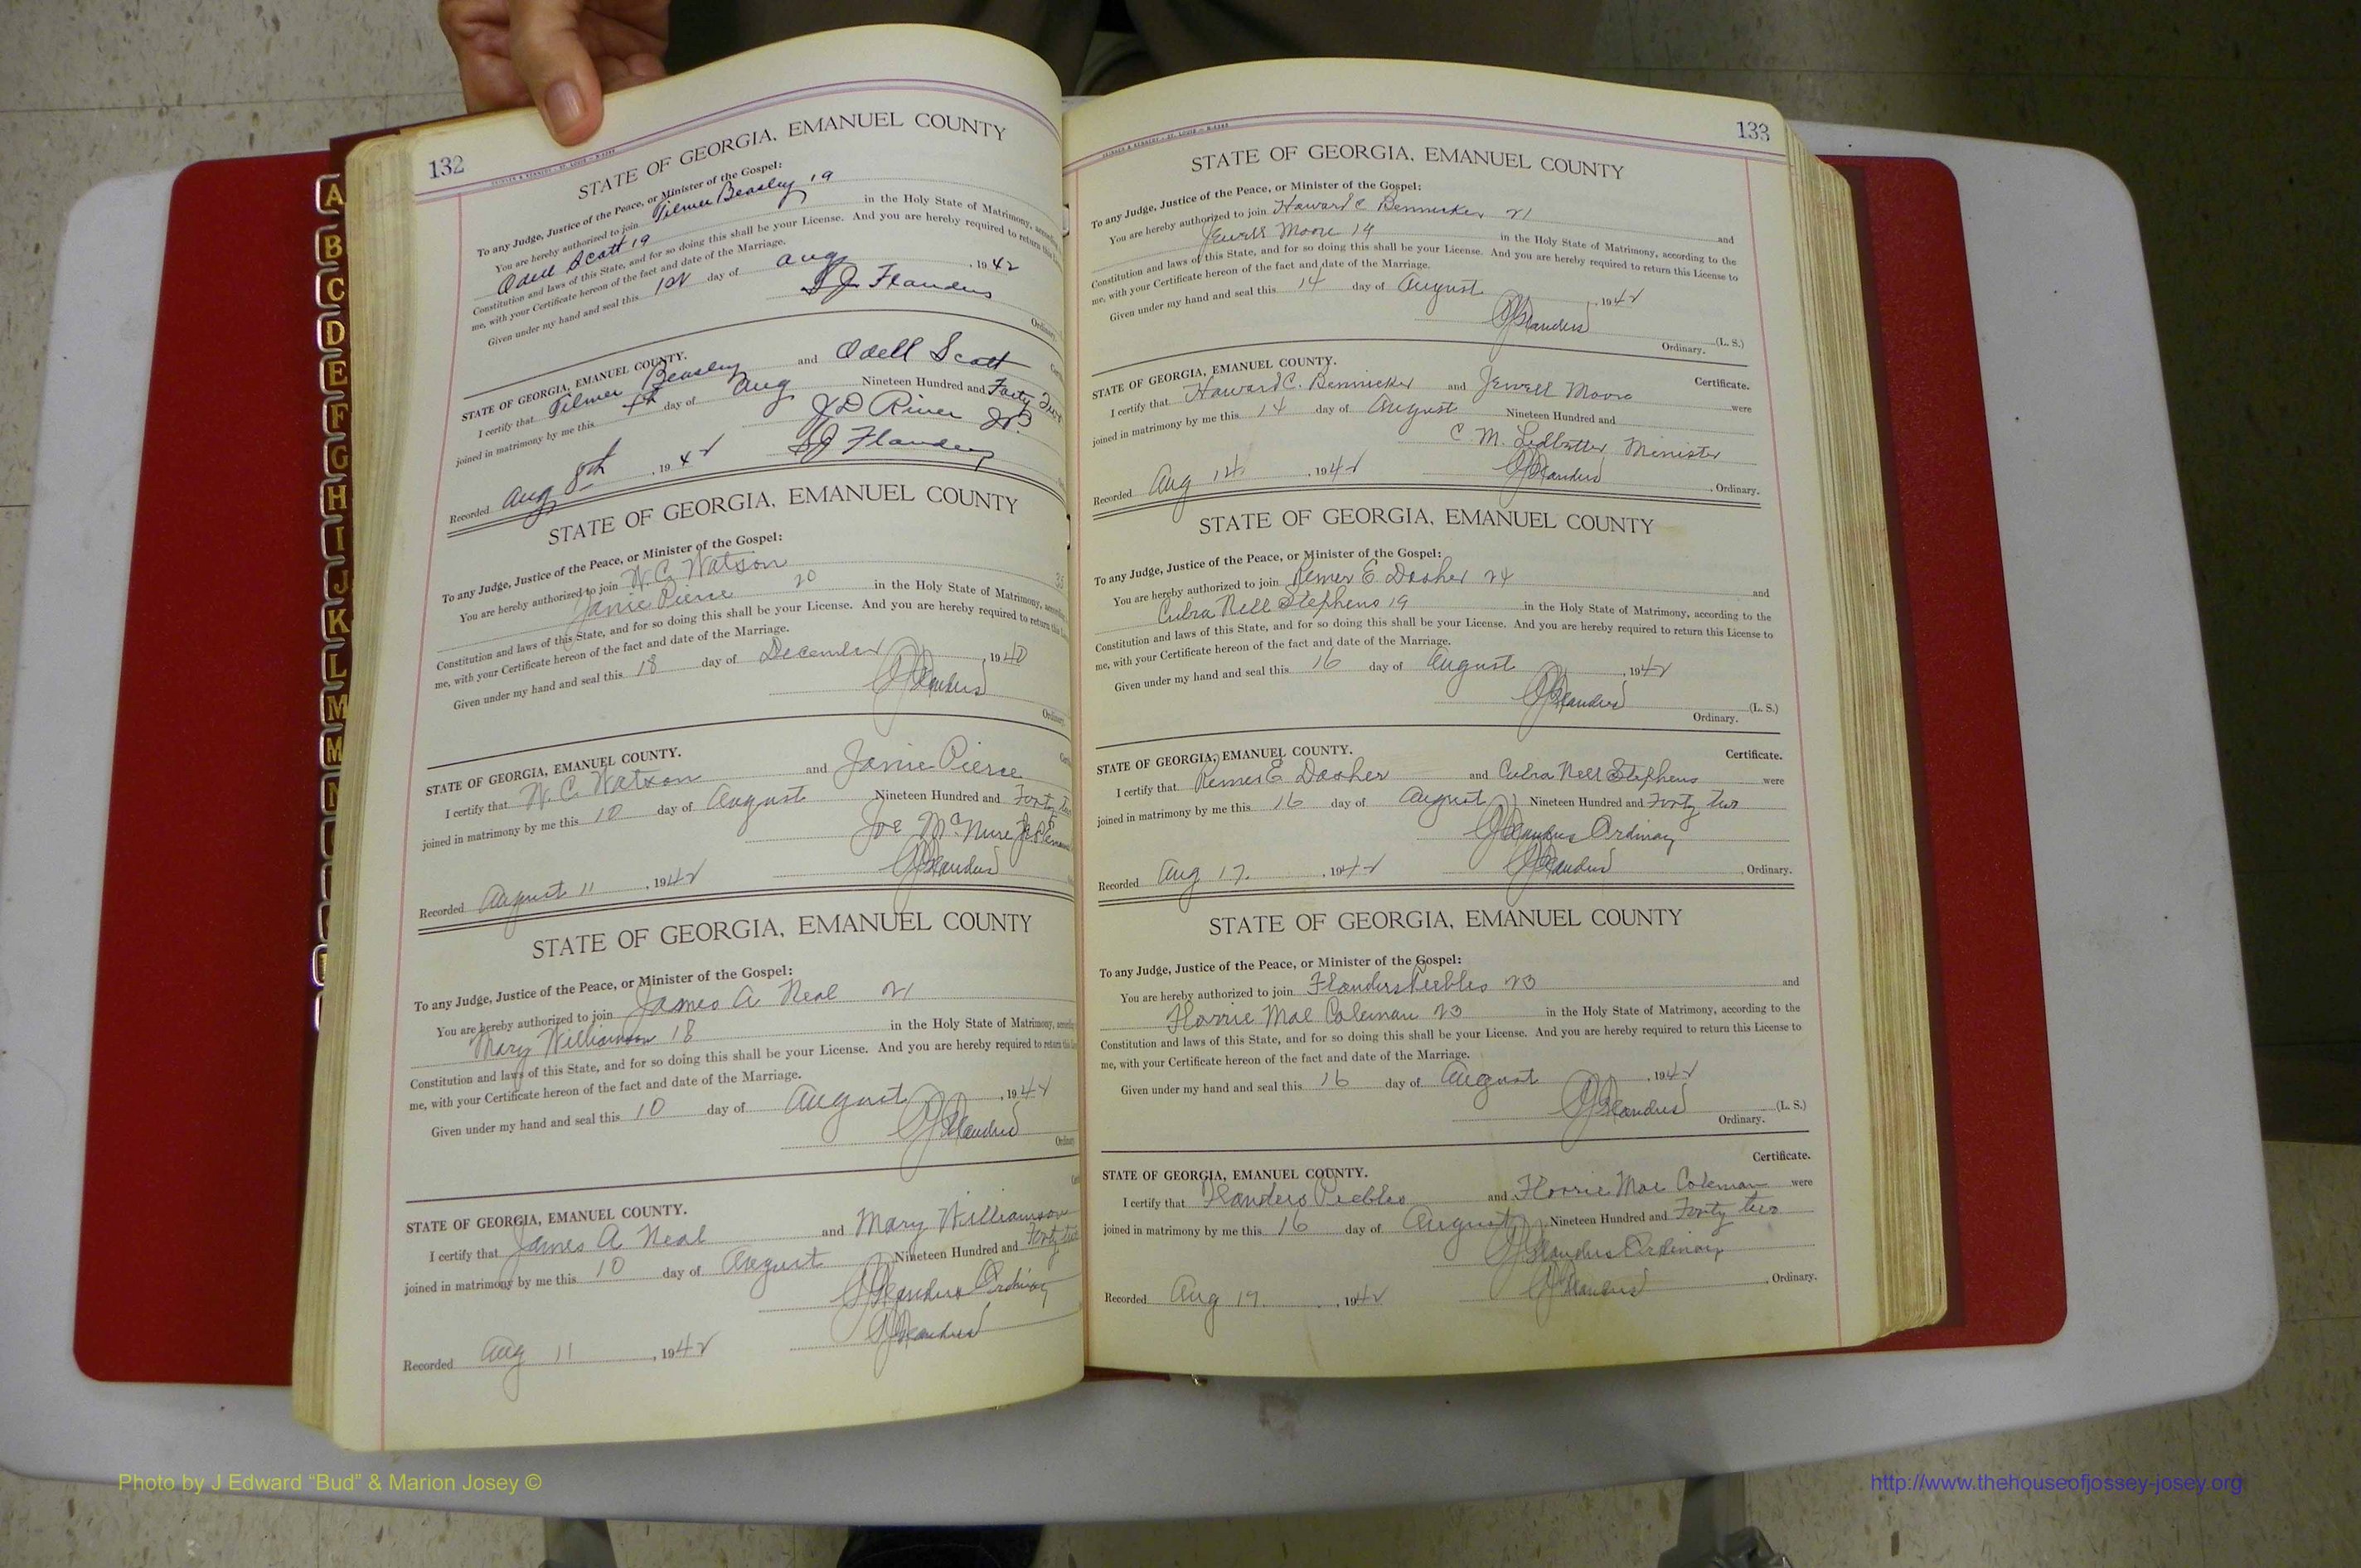 132
STATE OF GEORGIA, EMANUEL COUNTY
To any Judge, Justice of the Peace, or Minister of the Gospel:
You are hereby authorized to join Tilmer Beasley 19
Odell Scott 19 in the Holy State of Matrimony,
Constitution and laws of this State, and for so doing this shall be your License. And you are hereby required to return this
me, with your Certificate hereon of the fact and date of the Marriage.
Given under my hand and seal this 1st day of Aug, 1942
Flanders
Ordinary
STATE OF GEORGIA, EMANUEL COUNTY.
I certify that Tilmer Beasley and Odell Scott
joined in matrimony by me this day of Aug Nineteen Hundred and Forty Two
J D
Flanders
Recorded Aug 8th, 1942
STATE OF GEORGIA, EMANUEL COUNTY
To any Judge, Justice of the Peace, or Minister of the Gospel:
You are hereby authorized to join W. C. Watson
Janie Pierce 20 in the Holy State of Matrimony,
Constitution and laws of this State, and for so doing this shall be your License. And you are hereby required to return this
me, with your Certificate hereon of the fact and date of the Marriage.
Given under my hand and seal this 18 day of December, 1940
Flanders
Ordinary
STATE OF GEORGIA, EMANUEL COUNTY.
I certify that W. C. Watson and Janie Pierce
joined in matrimony by me this 10 day of August Nineteen Hundred and Forty two
Joe
Flanders
Recorded August 11, 1942
STATE OF GEORGIA, EMANUEL COUNTY
To any Judge, Justice of the Peace, or Minister of the Gospel:
You are hereby authorized to join James A Neal 21
Mary Williamson 18 in the Holy State of Matrimony,
Constitution and laws of this State, and for so doing this shall be your License. And you are hereby required to return this
me, with your Certificate hereon of the fact and date of the Marriage.
Given under my hand and seal this 10 day of August, 1942
Flanders
STATE OF GEORGIA, EMANUEL COUNTY.
I certify that James A Neal and Mary Williamson
joined in matrimony by me this 10 day of August Nineteen Hundred and Forty two
Flanders Ordinary
Flanders
Recorded Aug 11, 1942
133
STATE OF GEORGIA, EMANUEL COUNTY
To any Judge, Justice of the Peace, or Minister of the Gospel:
You are hereby authorized to join Howard C Bennicker 21 and
Jewell Moore 19 in the Holy State of Matrimony, according to the
Constitution and laws of this State, and for so doing this shall be your License. And you are hereby required to return this License to
me, with your Certificate hereon of the fact and date of the Marriage.
Given under my hand and seal this 14 day of August, 1942
Flanders (L. S.)
Ordinary.
STATE OF GEORGIA, EMANUEL COUNTY. Certificate.
I certify that Howard C. Bennicker and Jewell Moore were
joined in matrimony by me this 14 day of August Nineteen Hundred and
C. M. Ledbetter Minister
Flanders
Recorded Aug 14, 1942 Ordinary.
STATE OF GEORGIA, EMANUEL COUNTY
To any Judge, Justice of the Peace, or Minister of the Gospel:
You are hereby authorized to join Remer E Dasher 24 and
Cubra Nell Stephens 19 in the Holy State of Matrimony, according to the
Constitution and laws of this State, and for so doing this shall be your License. And you are hereby required to return this License to
me, with your Certificate hereon of the fact and date of the Marriage.
Given under my hand and seal this 16 day of August, 1942
Flanders (L. S.)
Ordinary.
STATE OF GEORGIA, EMANUEL COUNTY. Certificate.
I certify that Remer E Dasher and Cubra Nell Stephens were
joined in matrimony by me this 16 day of August Nineteen Hundred and Forty two
Flanders Ordinary
Flanders
Recorded Aug 17, 1942 Ordinary.
STATE OF GEORGIA, EMANUEL COUNTY
To any Judge, Justice of the Peace, or Minister of the Gospel:
You are hereby authorized to join Flanders Peebles 23 and
Florrie Mae Coleman 23 in the Holy State of Matrimony, according to the
Constitution and laws of this State, and for so doing this shall be your License. And you are hereby required to return this License to
me, with your Certificate hereon of the fact and date of the Marriage.
Given under my hand and seal this 16 day of August, 1942
Flanders (L. S.)
Ordinary.
Certificate.
STATE OF GEORGIA, EMANUEL COUNTY.
I certify that Flanders Peebles and Florrie Mae Coleman were
joined in matrimony by me this 16 day of August Nineteen Hundred and Forty two
Flanders Ordinary
Flanders
Recorded Aug 17, 1942 Ordinary.
A
B
C
D
E
F
G
H
I
J
K
L
M
M
N
Photo by J Edward “Bud” & Marion Josey ©
http://www.thehouseofjossey-josey.org